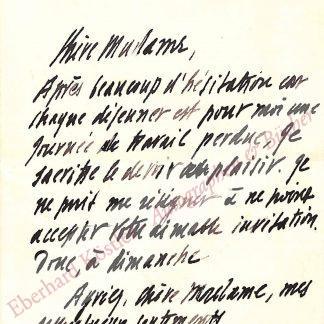 Chère Madame,
Après beaucoup d'hésitation car
chaque déjeuner est pour moi une
journée de travail perdue, je
sacrifie le devoir au plaisir. Je
ne puis me résigner à ne point
accepter votre aimable invitation.
Donc à dimanche
Agréez, chère Madame, mes
sentiments
Eberhard Köstler Autographen